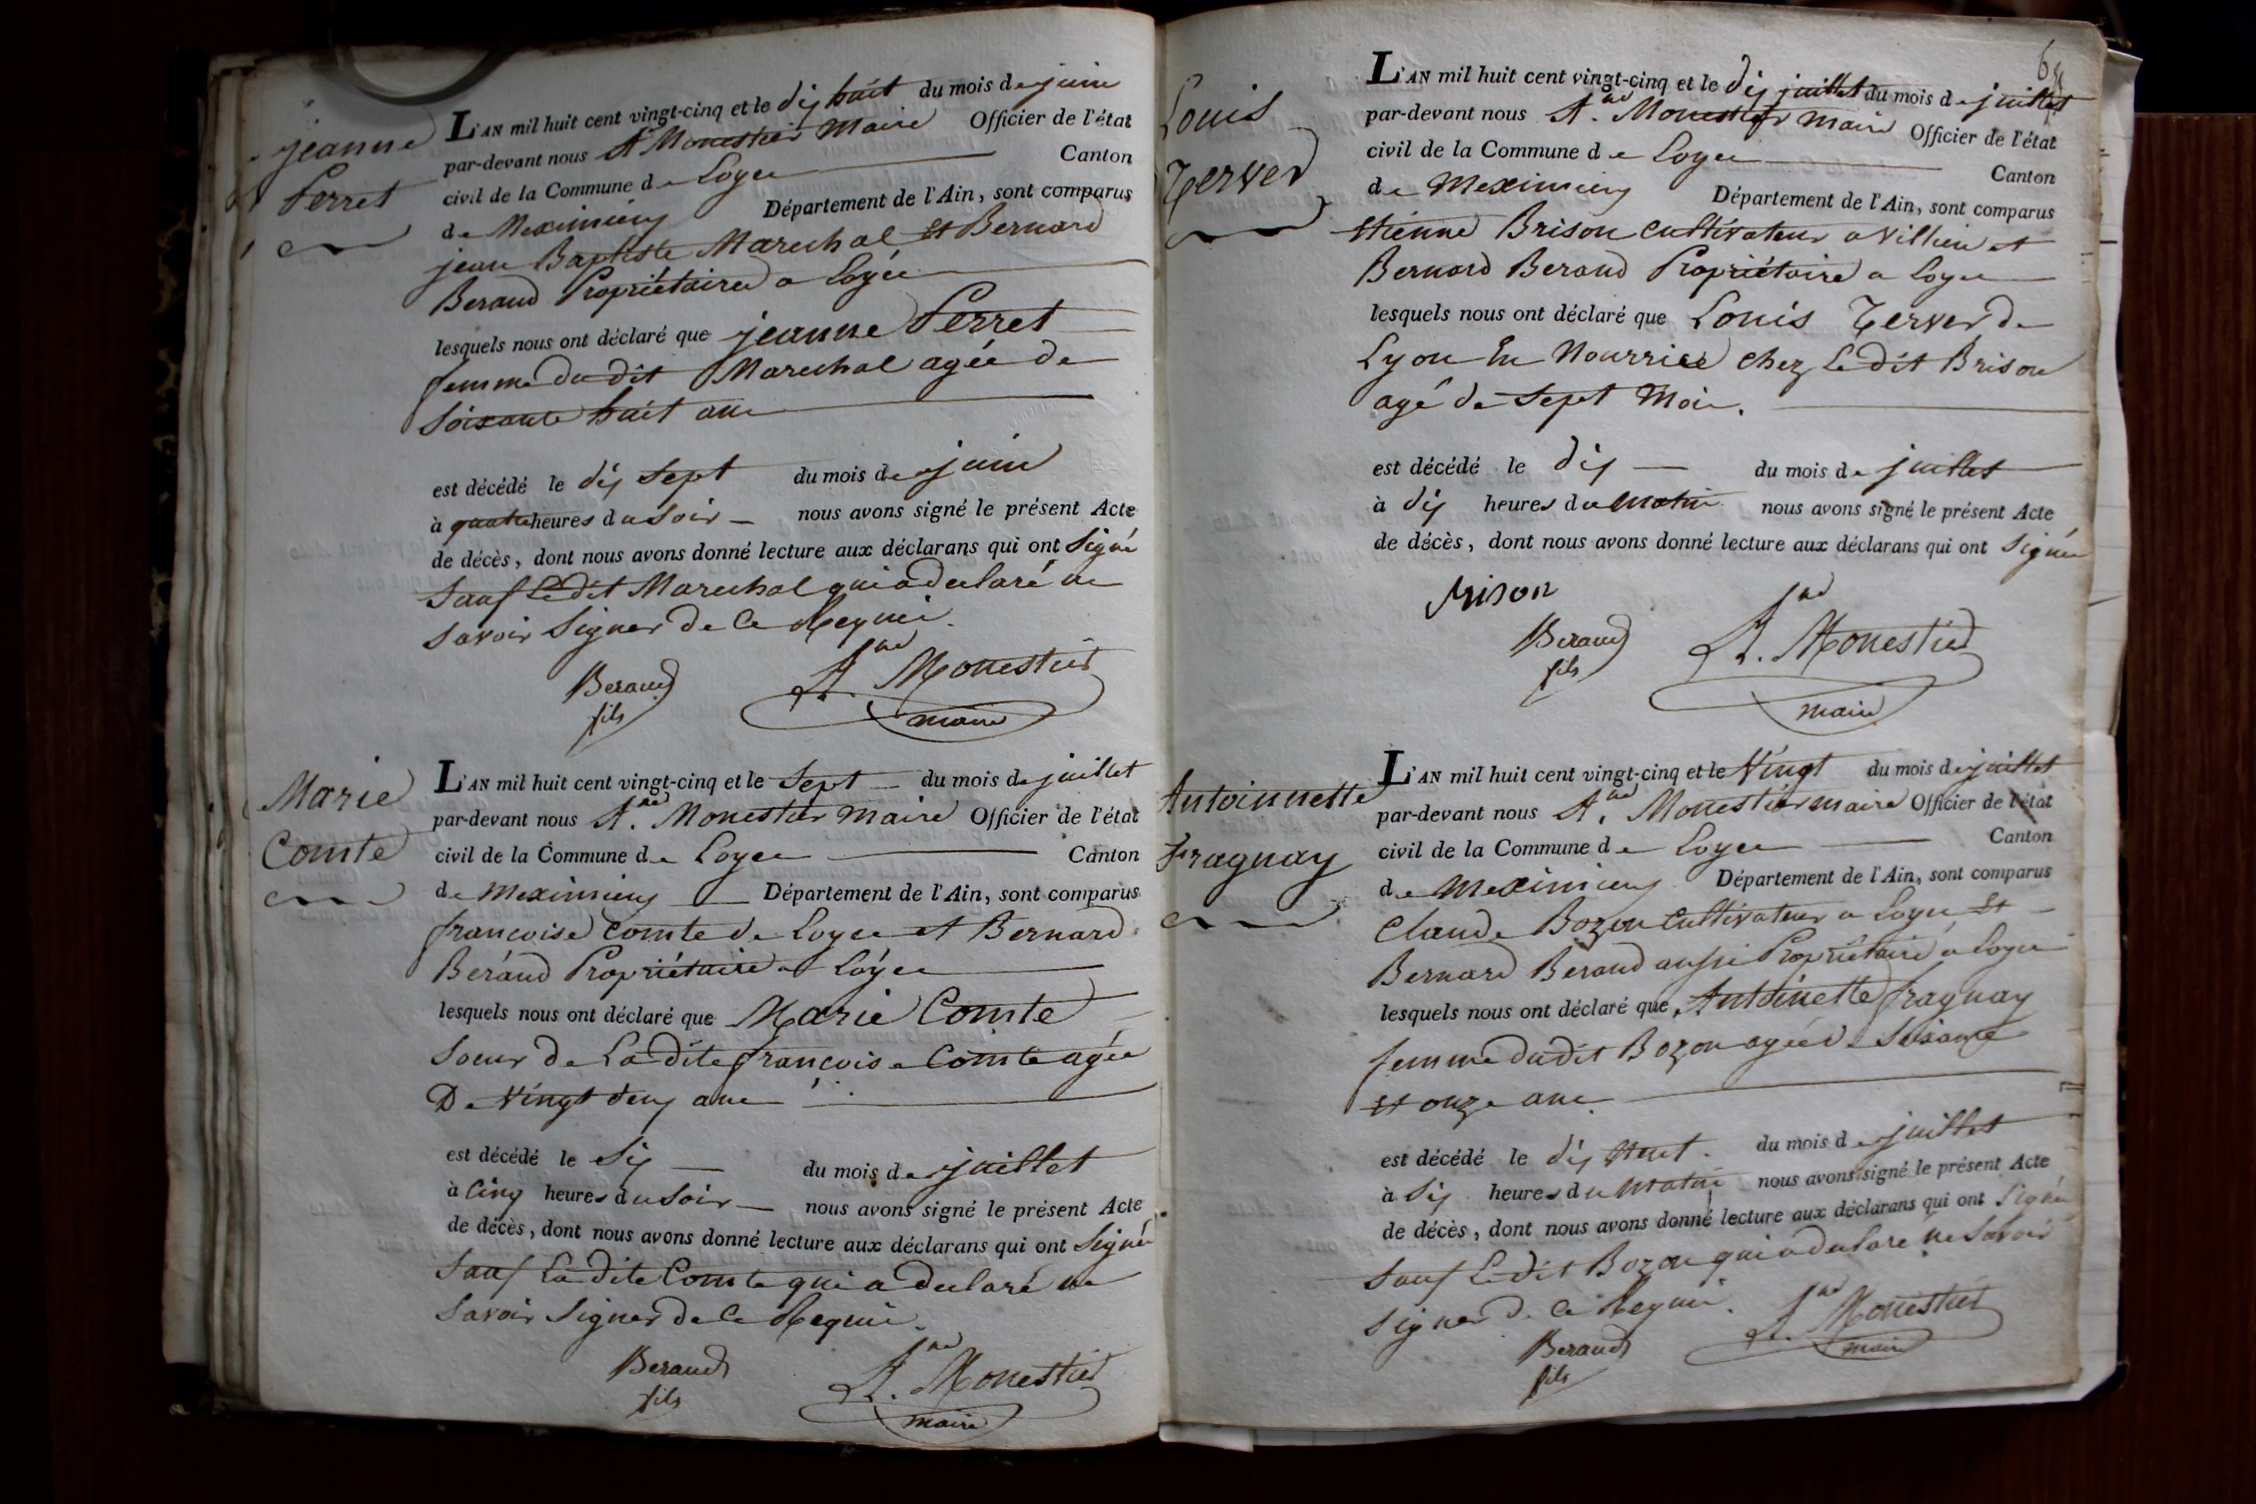 jeanne
Perret
L'AN mil huit cent vingt-cinq et le dix huit du mois de juin
par-devant nous A.ne Monestier maire Officier de l'état
civil de la Commune de Loyes Canton
de Meximieux Département de l'Ain, sont comparus
jean Baptiste Marechal et Bernard
Beraud Propriétaires a Loyes
lesquels nous ont déclaré que jeanne Perret
femme du dit Marechal agée de
soixante huit ans
est décédé le dix sept du mois de juin
à quatre heures du soir nous avons signé le présent Acte
de décès, dont nous avons donné lecture aux déclarans qui ont signé
sauf Ledit Marechal qui a declaré ne
savoir signer de ce Requis.
Beraud A.ne Monestier
fils maire
Marie
Comte
L'AN mil huit cent vingt-cinq et le sept du mois de juillet
par-devant nous A.ne Monestier maire Officier de l'état
civil de la Commune de Loyes Canton
de Meximieux Département de l'Ain, sont comparus
francoise Comte de Loyes et Bernard
Beraud Propriétaire a Loyes
lesquels nous ont déclaré que Marie Comte
soeur de La dite francoise Comte agée
De vingt deux ans
est décédé le six du mois de juillet
à cinq heures du soir nous avons signé le présent Acte
de décès, dont nous avons donné lecture aux déclarans qui ont signé
sauf La dite Comte qui a declaré ne
savoir signer de ce Requis.
Beraud A.ne Monestier
fils maire
Louis
Terver
L'AN mil huit cent vingt-cinq et le dix juillet du mois de juillet
par-devant nous A.ne Monestier maire Officier de l'état
civil de la Commune de Loyes Canton
de Meximieux Département de l'Ain, sont comparus
Etienne Brison cultivateur a Villieu et
Bernard Beraud Propriétaire a Loyes
lesquels nous ont déclaré que Louis Terver de
Lyon En Nourrice chez Ledit Brison
agé de sept mois.
est décédé le dix du mois de juillet
à dix heures du matin nous avons signé le présent Acte
de décès, dont nous avons donné lecture aux déclarans qui ont signé
Brison
Beraud A.ne Monestier
fils maire
Antoinnette
Fraguay
L'AN mil huit cent vingt-cinq et le vingt du mois de juillet
par-devant nous A.ne Monestier maire Officier de l'état
civil de la Commune de Loyes Canton
de Meximieux Département de l'Ain, sont comparus
Claude Bozon cultivateur a Loyes Et
Bernard Beraud aussi Propriétaire a Loyes
lesquels nous ont déclaré que Antoinette fraguay
femme dudit Bozon agée de soixante
et onze ans
est décédé le dix neuf du mois de juillet
à six heures du matin nous avons signé le présent Acte
de décès, dont nous avons donné lecture aux déclarans qui ont signé
sauf Ledit Bozon qui a declaré ne savoir
signer de ce Requis. A.ne Monestier
Beraud maire
fils